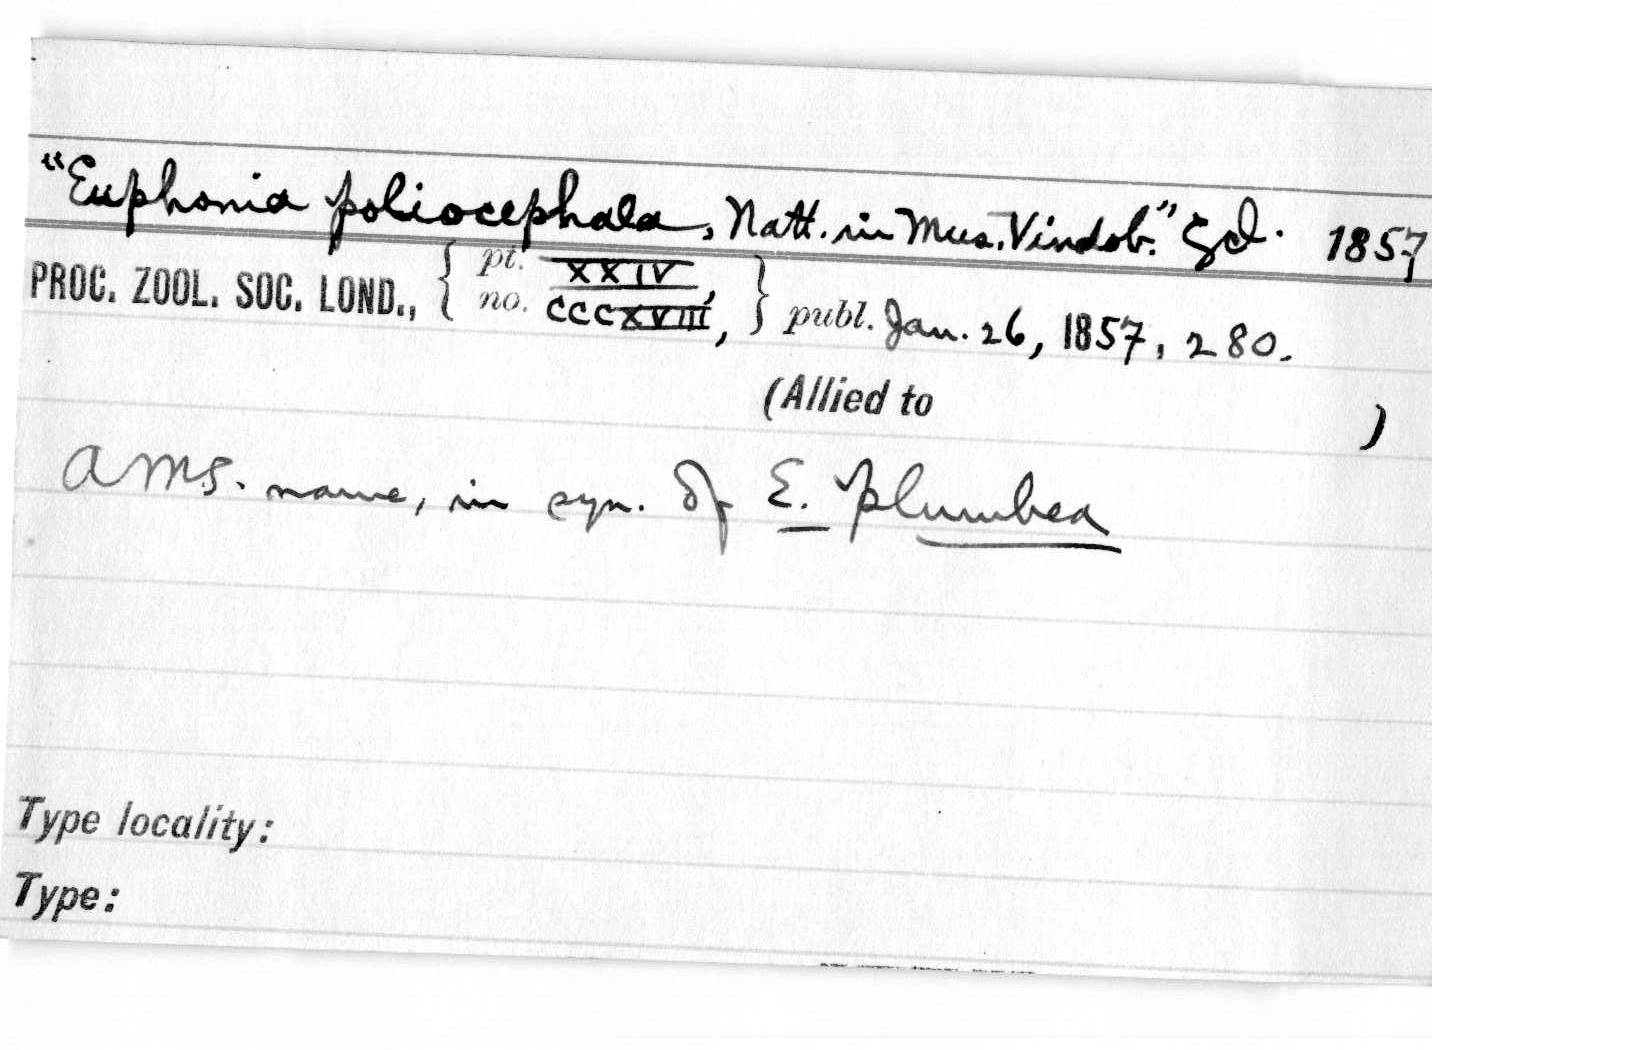 "Euphonia poliocephala, Natt. in Mus. Vindob." Scl. 1857
PROC. ZOOL. SOC. LOND., { pt. XXIV, no. CCCXVIII, } publ. Jan. 26, 1857, 280.
(Allied to )
a ms. name, in syn. of E. plumbea
Type locality:
Type: